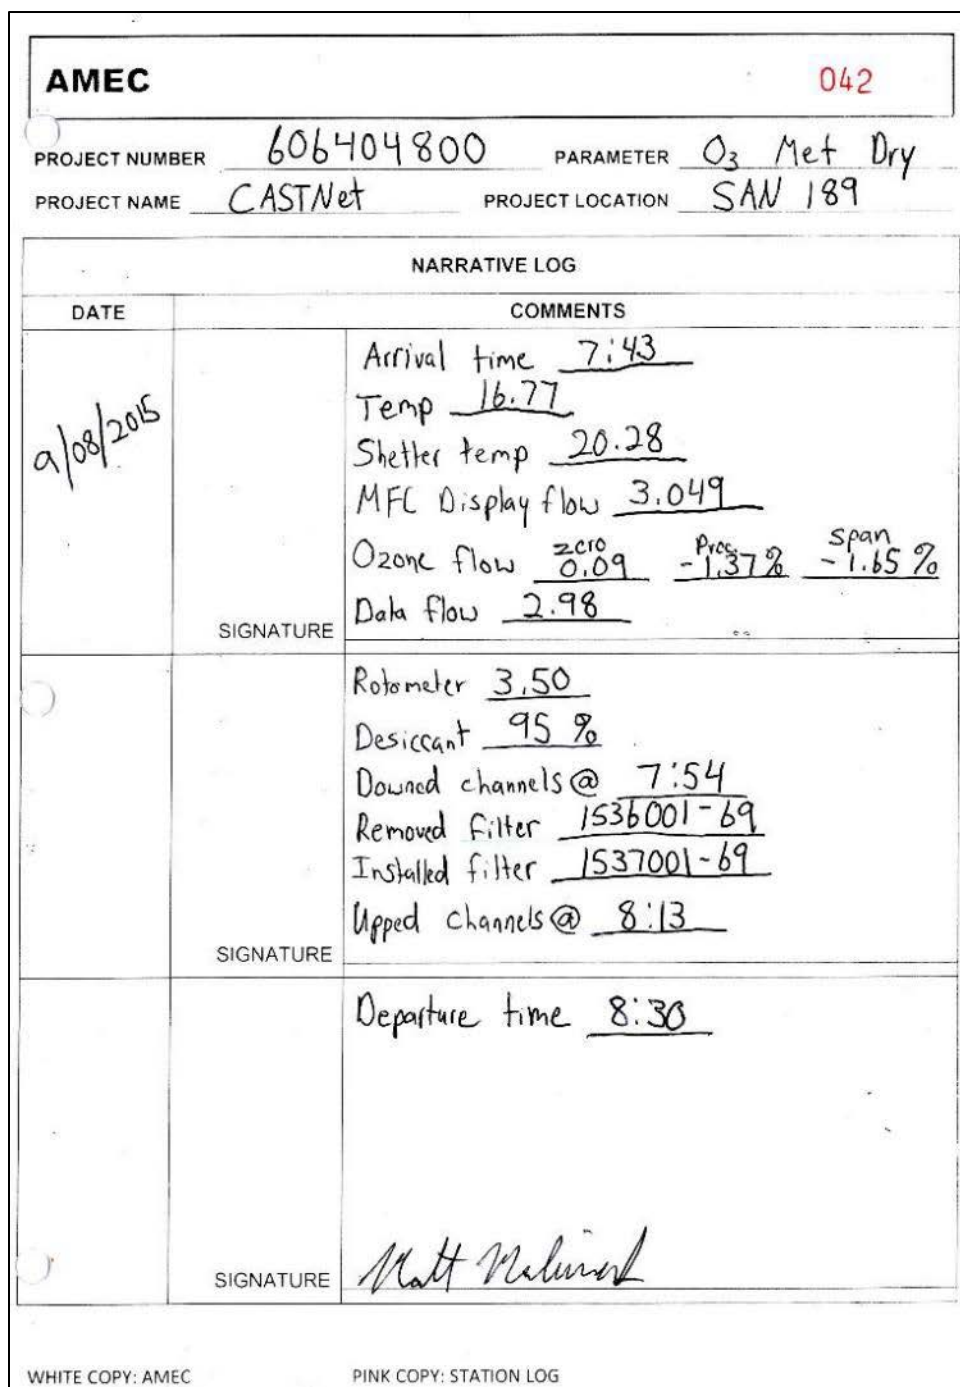 AMEC 042
PROJECT NUMBER 606404800 PARAMETER O3 Met Dry
PROJECT NAME CASTNet PROJECT LOCATION SAN 189
NARRATIVE LOG
DATE COMMENTS
9/08/2015
Arrival time 7:43
Temp 16.77
Shelter temp 20.28
MFC Display flow 3.049
zero Prec. span
Ozone flow 0.09 -1.37% -1.65%
Data flow 2.98
SIGNATURE
Rotometer 3.50
Desiccant 95 %
Downed channels @ 7:54
Removed filter 1536001-69
Installed filter 1537001-69
Upped channels @ 8:13
SIGNATURE
Departure time 8:30
SIGNATURE Matt
WHITE COPY: AMEC PINK COPY: STATION LOG